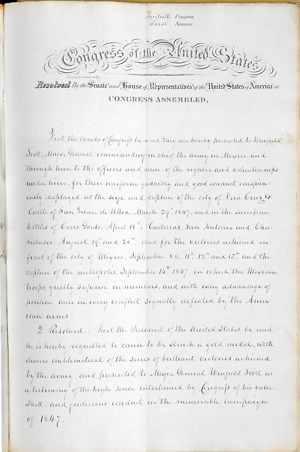 Thirtieth Congress
First Session
Congress of the United States,
Resolved By the Senate and House of Representatives of the United States of America in
CONGRESS ASSEMBLED,
That the thanks of Congress be and they are hereby presented to Winfield
Scott, Major General commanding in chief the army in Mexico and
through him to the officers and men of the regular and volunteer corps
under him, for their uniform gallantry and good conduct conspicu-
ously displayed at the siege and capture of the city of Vera Cruz &
Castle of San Juan de Ulloa, March 29, 1847, and in the successive
battles of Cerro Gordo, April 18th, Contreras, San Antonio and Chu-
rubusco, August 19th and 20th and for the victories achieved in
front of the city of Mexico, September 8th, 11th, 12th and 13th and the
capture of the metropolis, September 14th 1847, in which the Mexican
troops greatly superior in numbers and with every advantage of
position were in every conflict signally defeated by the Amer-
ican arms.
2. Resolved. That the President of the United States be and
he is hereby requested to cause to be struck a gold medal, with
devices emblematical of the series of brilliant victories achieved
by the army, and presented to Major General Winfield Scott as
a testimony of the high sense entertained by Congress of his valor,
skill, and judicious conduct in the memorable campaign
of 1847.